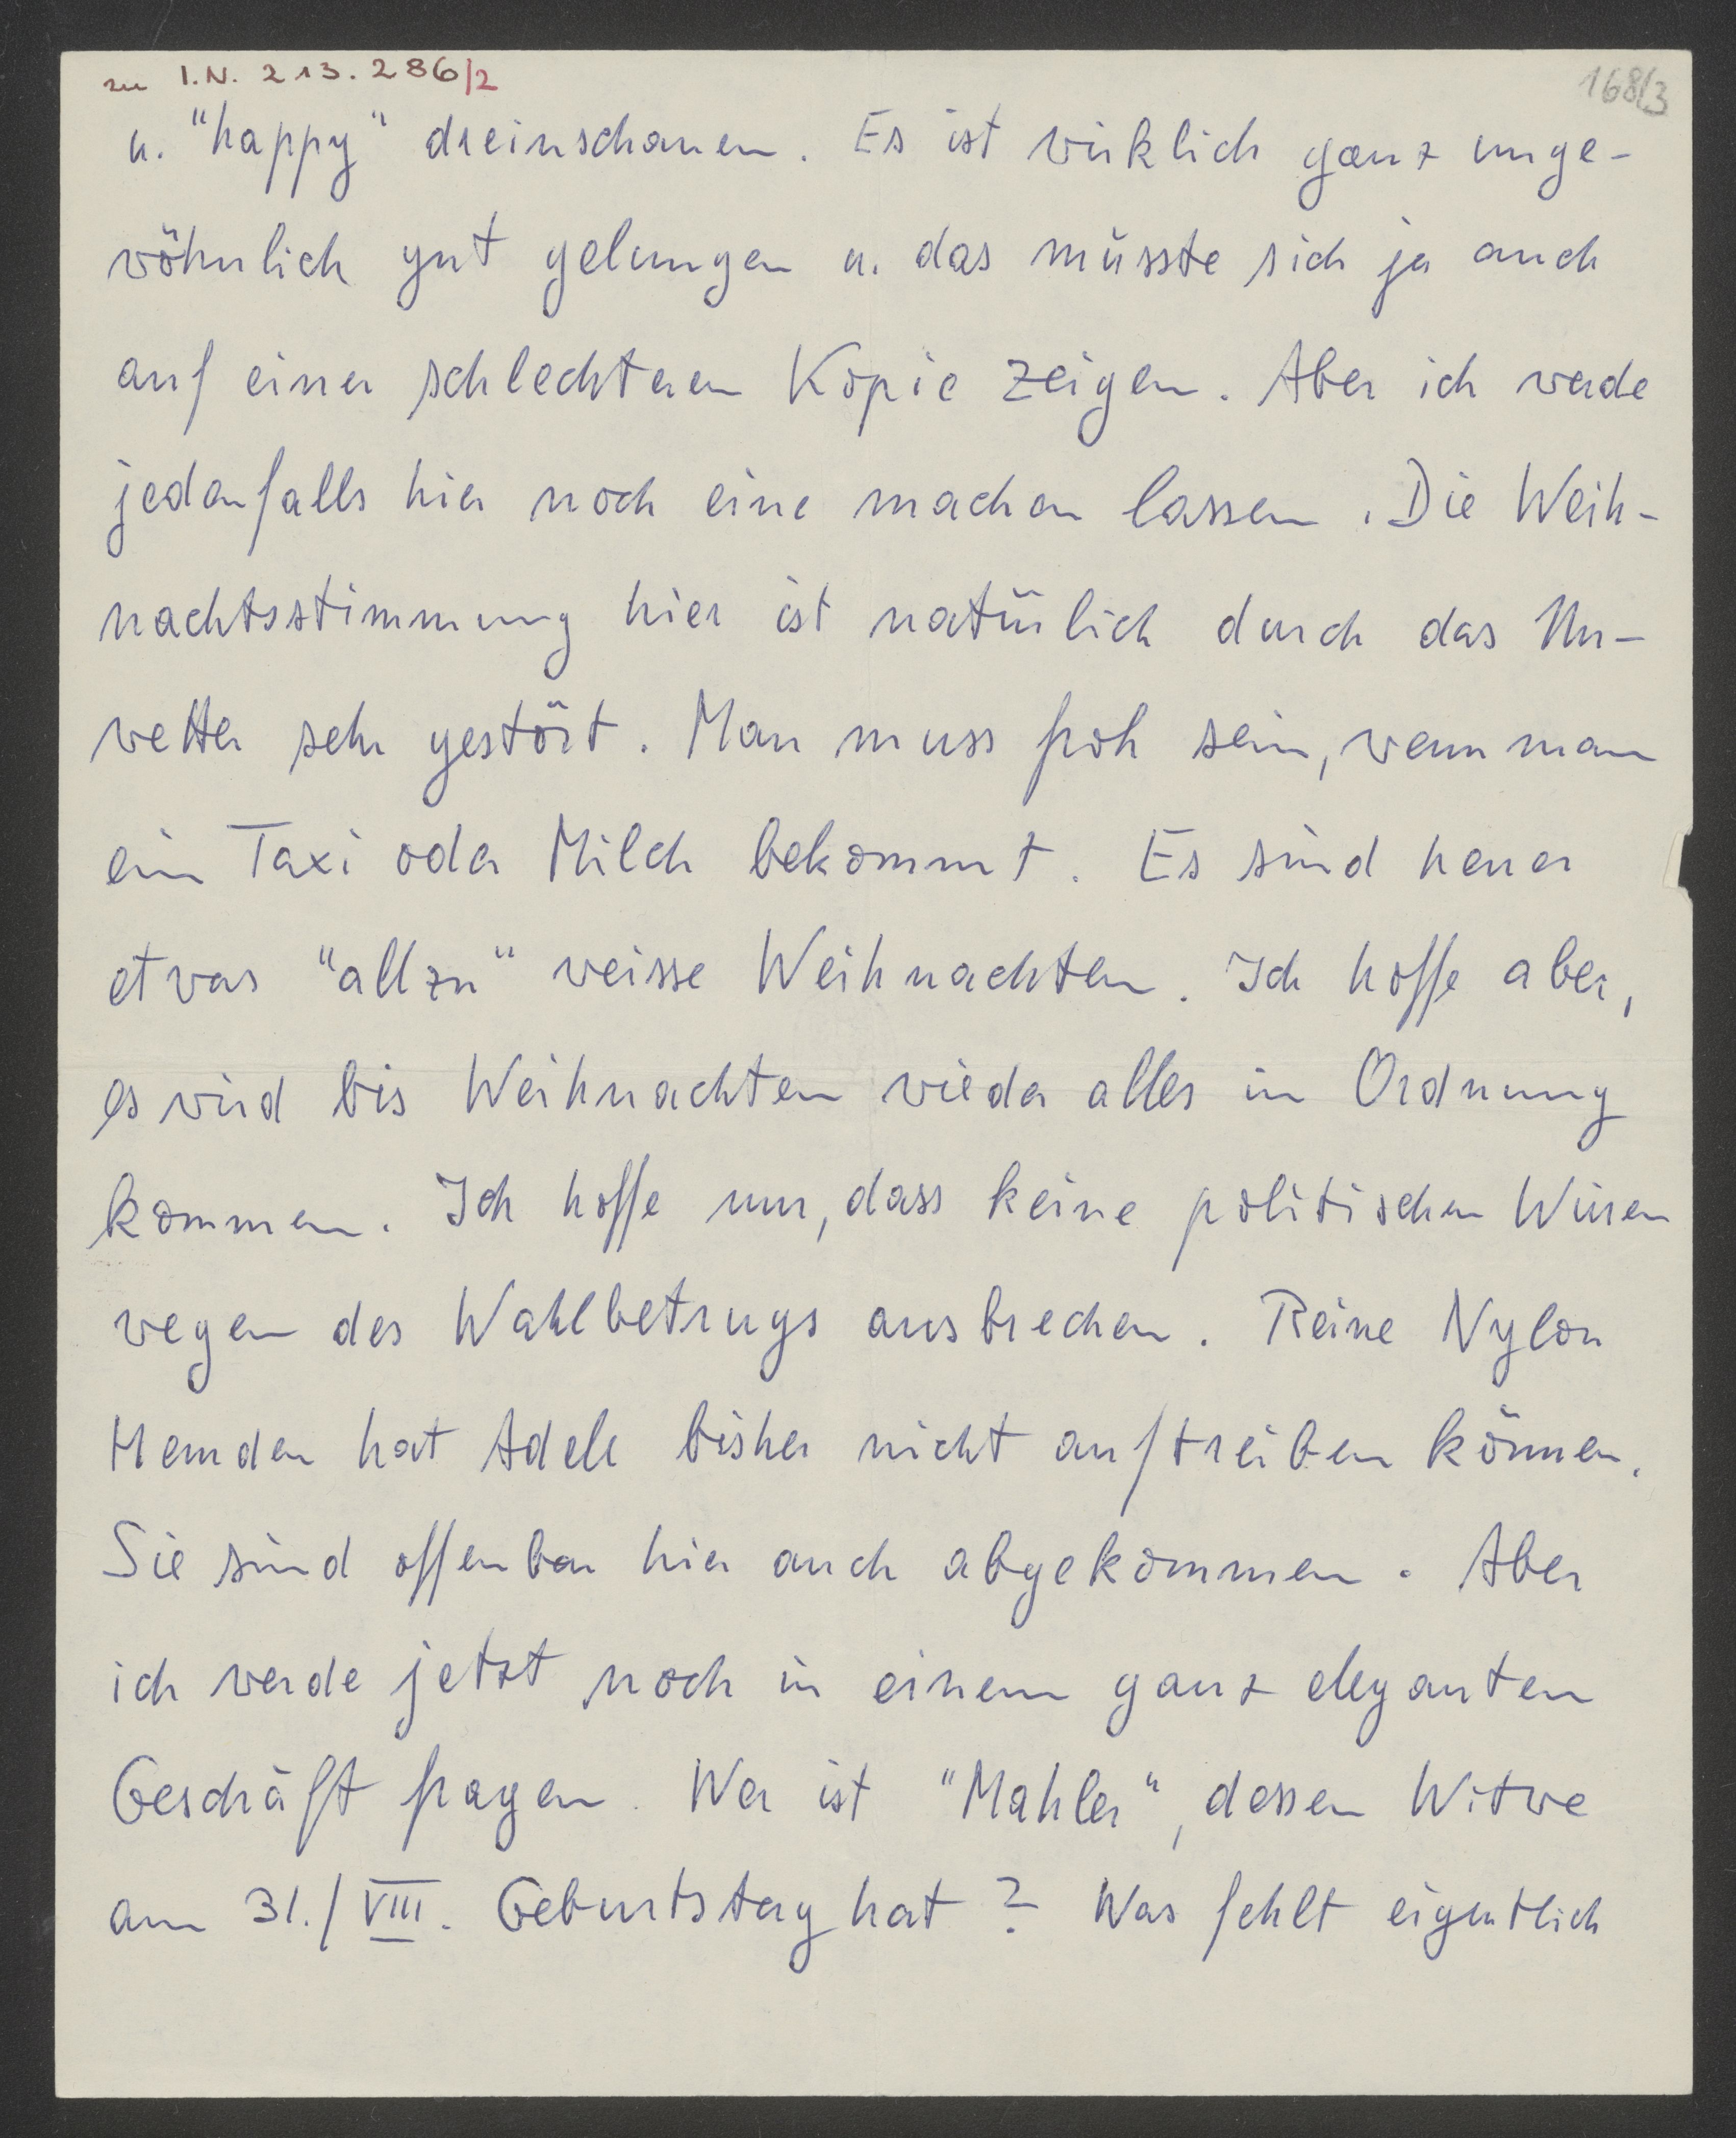 zu I.N. 213.286/2
168/3
u. "happy" dreinschauen. Es ist wirklich ganz unge-
wöhnlich gut gelungen u. das müsste sich ja auch
auf einer schlechteren Kopie zeigen. Aber ich werde
jedenfalls hier noch eine machen lassen. Die Weih-
nachtsstimmung hier ist natürlich durch das Un-
wetter sehr gestört. Man muss froh sein, wenn man
ein Taxi oder Milch bekommt. Es sind heuer
etwas "allzu" weisse Weihnachten. Ich hoffe aber,
es wird bis Weihnachten wieder alles in Ordnung
kommen. Ich hoffe nur, dass keine politischen Wirren
wegen des Wahlbetrugs ausbrechen. Reine Nylon
Hemden hat Adele bisher nicht auftreiben können.
Sie sind offenbar hier auch abgekommen. Aber
ich werde jetzt noch in einem ganz eleganten
Geschäft fragen. Wer ist "Mahler", dessen Witwe
am 31./VIII. Geburtstag hat? Was fehlt eigentlich